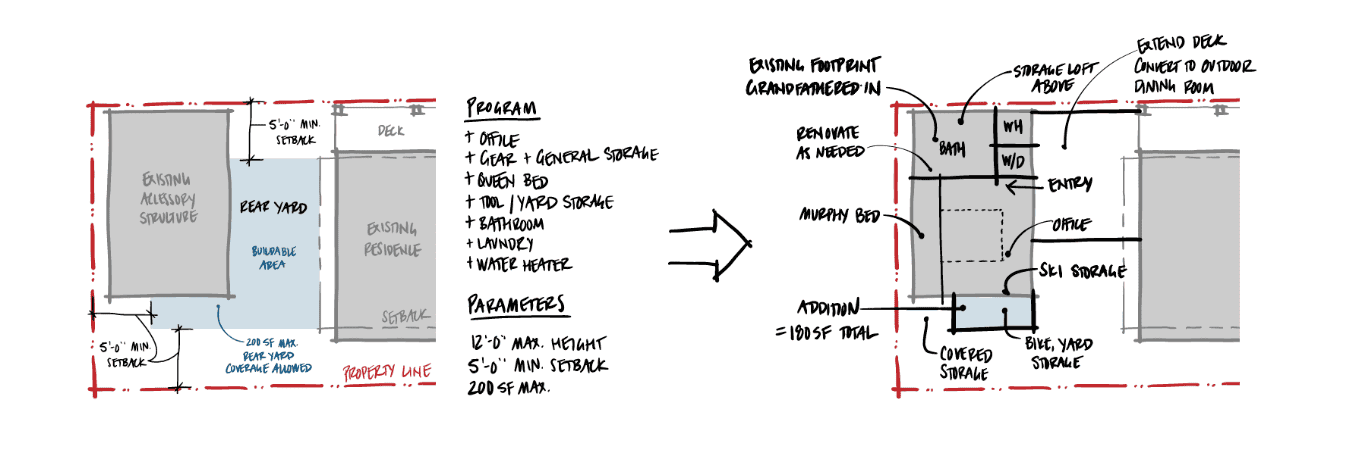 5'-0" MIN.
SETBACK
DECK
EXISTING
ACCESSORY
STRUCTURE
REAR YARD
BUILDABLE
AREA
EXISTING
RESIDENCE
SETBACK
5'-0" MIN.
SETBACK
200 SF MAX.
REAR YARD
COVERAGE ALLOWED
PROPERTY LINE
PROGRAM
+ OFFICE
+ GEAR + GENERAL STORAGE
+ QUEEN BED
+ TOOL / YARD STORAGE
+ BATHROOM
+ LAUNDRY
+ WATER HEATER
PARAMETERS
12'-0" MAX. HEIGHT
5'-0" MIN. SETBACK
200 SF MAX.
EXISTING FOOTPRINT
GRANDFATHERED IN
STORAGE LOFT
ABOVE
EXTEND DECK
CONVERT TO OUTDOOR
DINING ROOM
RENOVATE
AS NEEDED
BATH
WH
W/D
ENTRY
MURPHY BED
OFFICE
SKI STORAGE
ADDITION
= 180 SF TOTAL
COVERED
STORAGE
BIKE, YARD
STORAGE